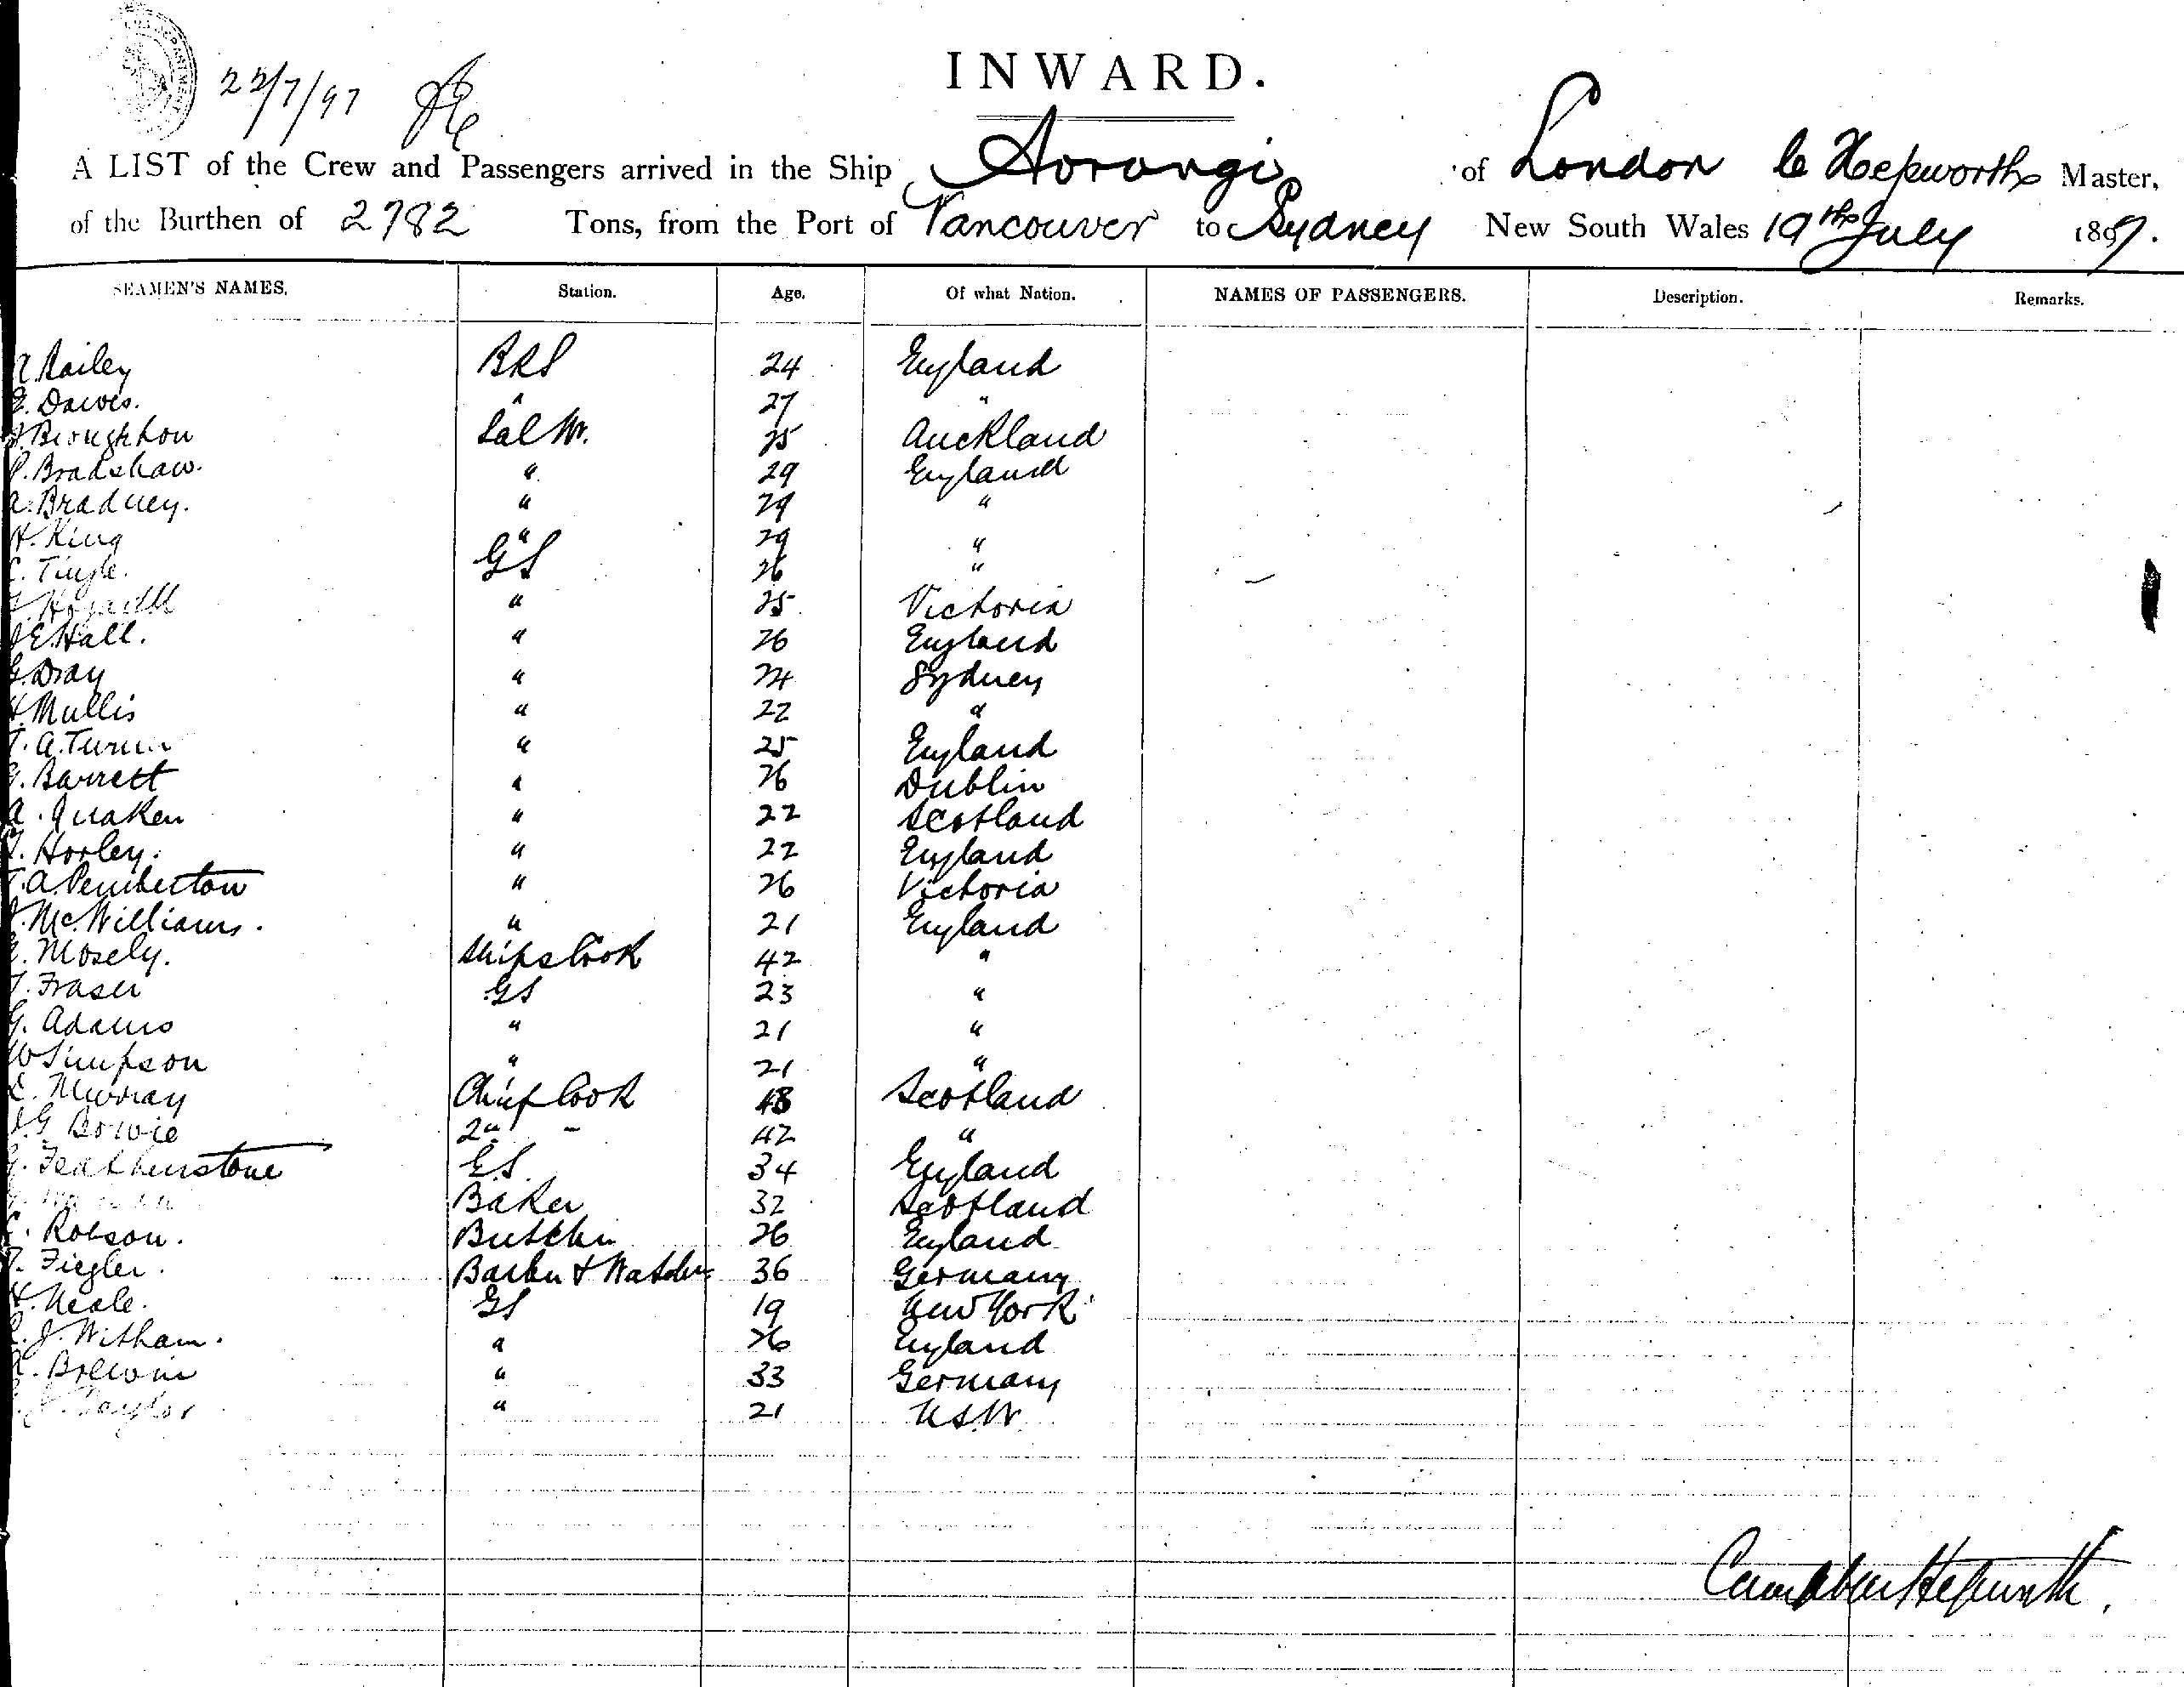 22/7/97
INWARD.
A LIST of the Crew and Passengers arrived in the Ship Aorangi of London C Hepworth Master,
of the Burthen of 2782 Tons, from the Port of Vancouver to Sydney New South Wales 19th July 1897.
SEAMEN'S NAMES. Station. Age. Of what Nation. NAMES OF PASSENGERS. Description. Remarks.
Bailey BRS 24 England
Dawes. " 27 "
Broughton Sal Wr. 25 Auckland
P. Bradshaw. " 29 England
A. Bradney. " 29 "
H. King " 29 "
C. Tingle. GS 26 "
" 25 Victoria
J E Hall. " 26 England
G. Dray " 24 Sydney
H. Mullis " 22 "
T. A. Turner " 25 England
G. Barrett " 26 Dublin
A. Quaken " 22 Scotland
Horley. " 22 England
T. A. Pemberton " 26 Victoria
J. McWilliams. " 21 England
Mosely. Ships Cook 42 "
T. Fraser GS 23 "
G. Adams " 21 "
W Simpson " 21 "
D. Murray Chief Cook 48 Scotland
J G Bowie 2nd - 42 "
G. Featherstone E.S. 34 England
Baker 32 Scotland
C. Robson. Butcher 26 England
Fiegler. Barber & Watchr 36 Germany
H. Neale. GS 19 New York
J. Witham. " 26 England
" 33 Germany
Taylor " 21 NSW
Hepworth.